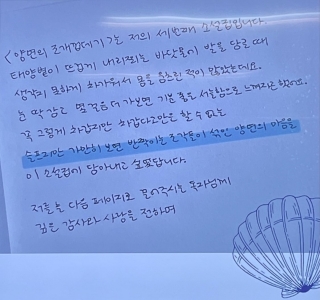 <양면의 조개껍데기>는 저의 세번째 소설집입니다.
태양볕이 뜨겁게 내리쬐는 바닷물이 발을 담글 때
생각지 못하게 차가워서 몸을 움츠린 적이 많았는데요.
눈 딱 감고 몇 걸음 더 가보면 기분 좋은 서늘함으로 느껴지곤 했어요.
꼭 그렇게 차갑지만 차갑다고만은 할 수 없는
슬프지만 가만히 보면 반짝이는 조각들이 섞인 양면의 마음을
이 소설집에 담아내고 싶었답니다.
저를 늘 다음 페이지로 밀어주시는 독자님께
깊은 감사와 사랑을 전하며